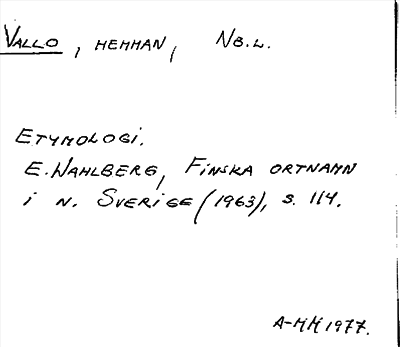 VALLO, HEMMAN, NB.L.
ETYMOLOGI.
E. WAHLBERG, FINSKA ORTNAMN
i N. SVERIGE (1963), S. 114.
A-MH 1977.